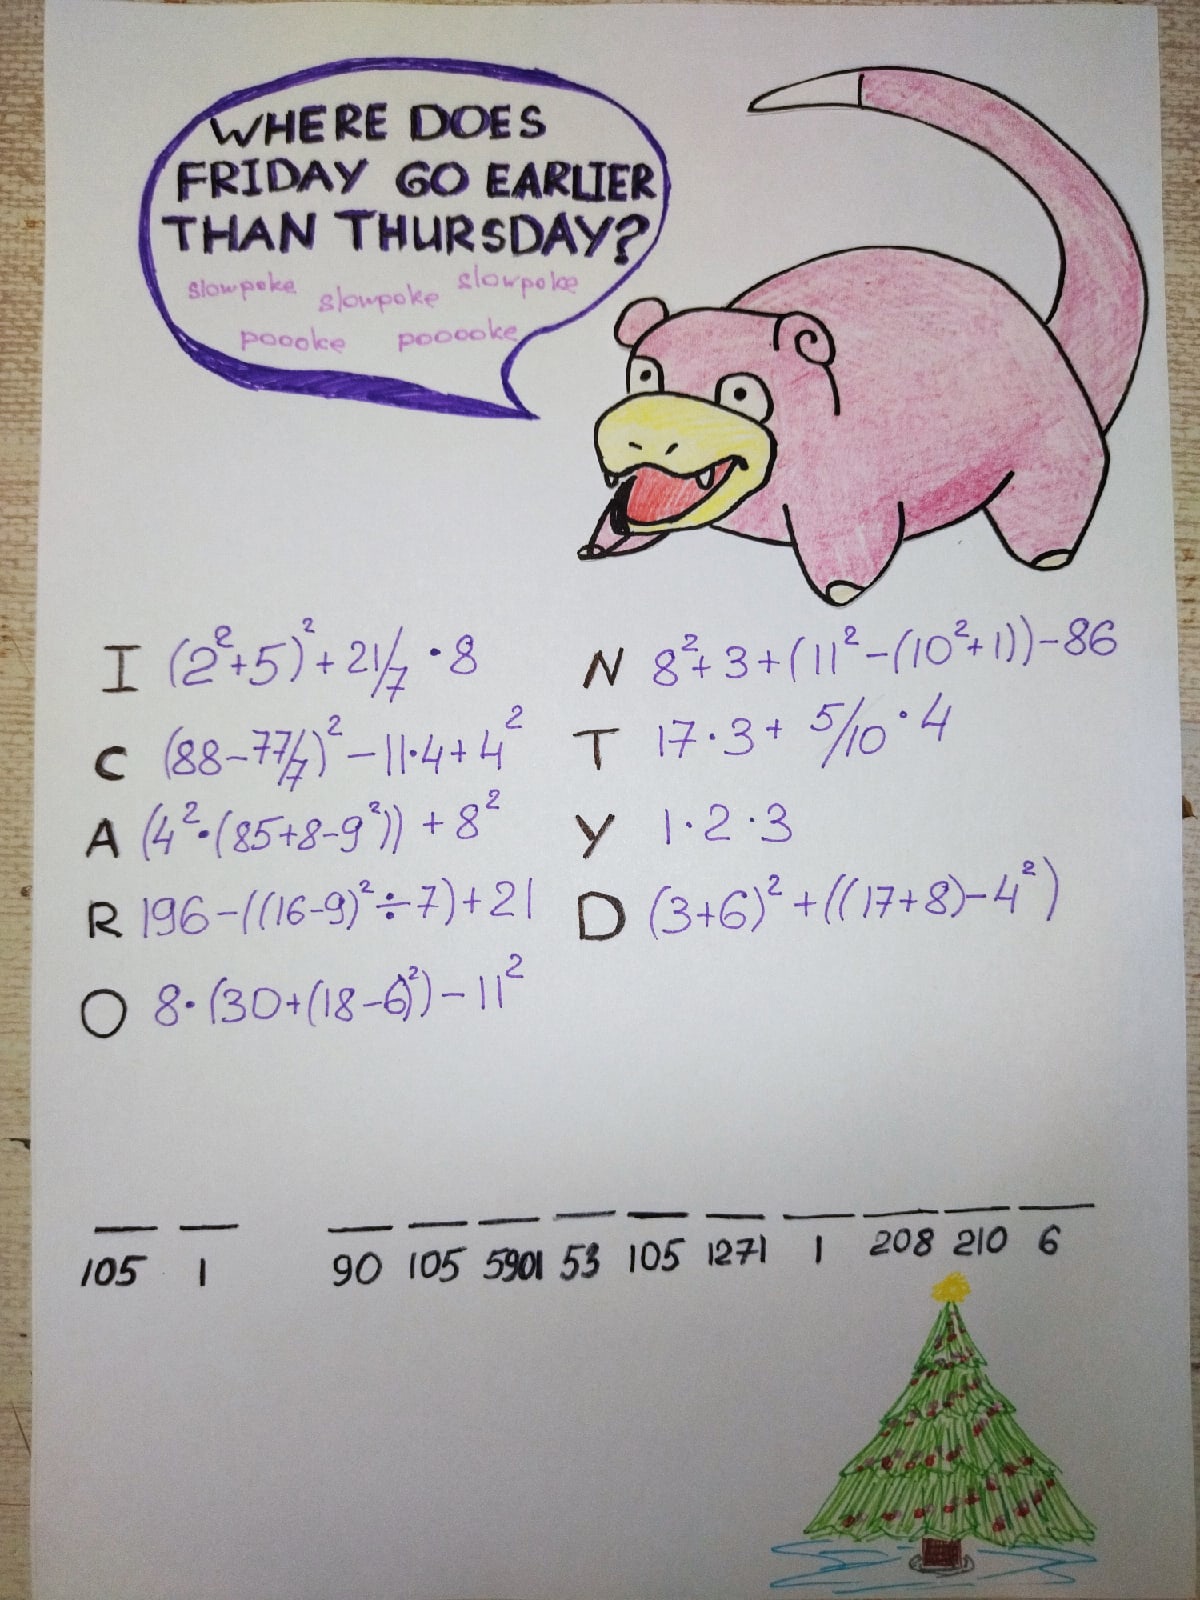 WHERE DOES
FRIDAY GO EARLIER
THAN THURSDAY?
slowpoke slowpoke slowpoke
poooke pooooke
I (2²+5)² + 21/7 · 8
C (88-77/7)² - 11·4 + 4²
A (4²·(85+8-9²)) + 8²
R 196-((16-9)²÷7)+21
O 8·(30+(18-6)²)-11²
N 8²+3+(11²-(10²+1))-86
T 17·3+ 5/10 · 4
Y 1·2·3
D (3+6)²+((17+8)-4²)
105 1 90 105 5901 53 105 1271 1 208 210 6